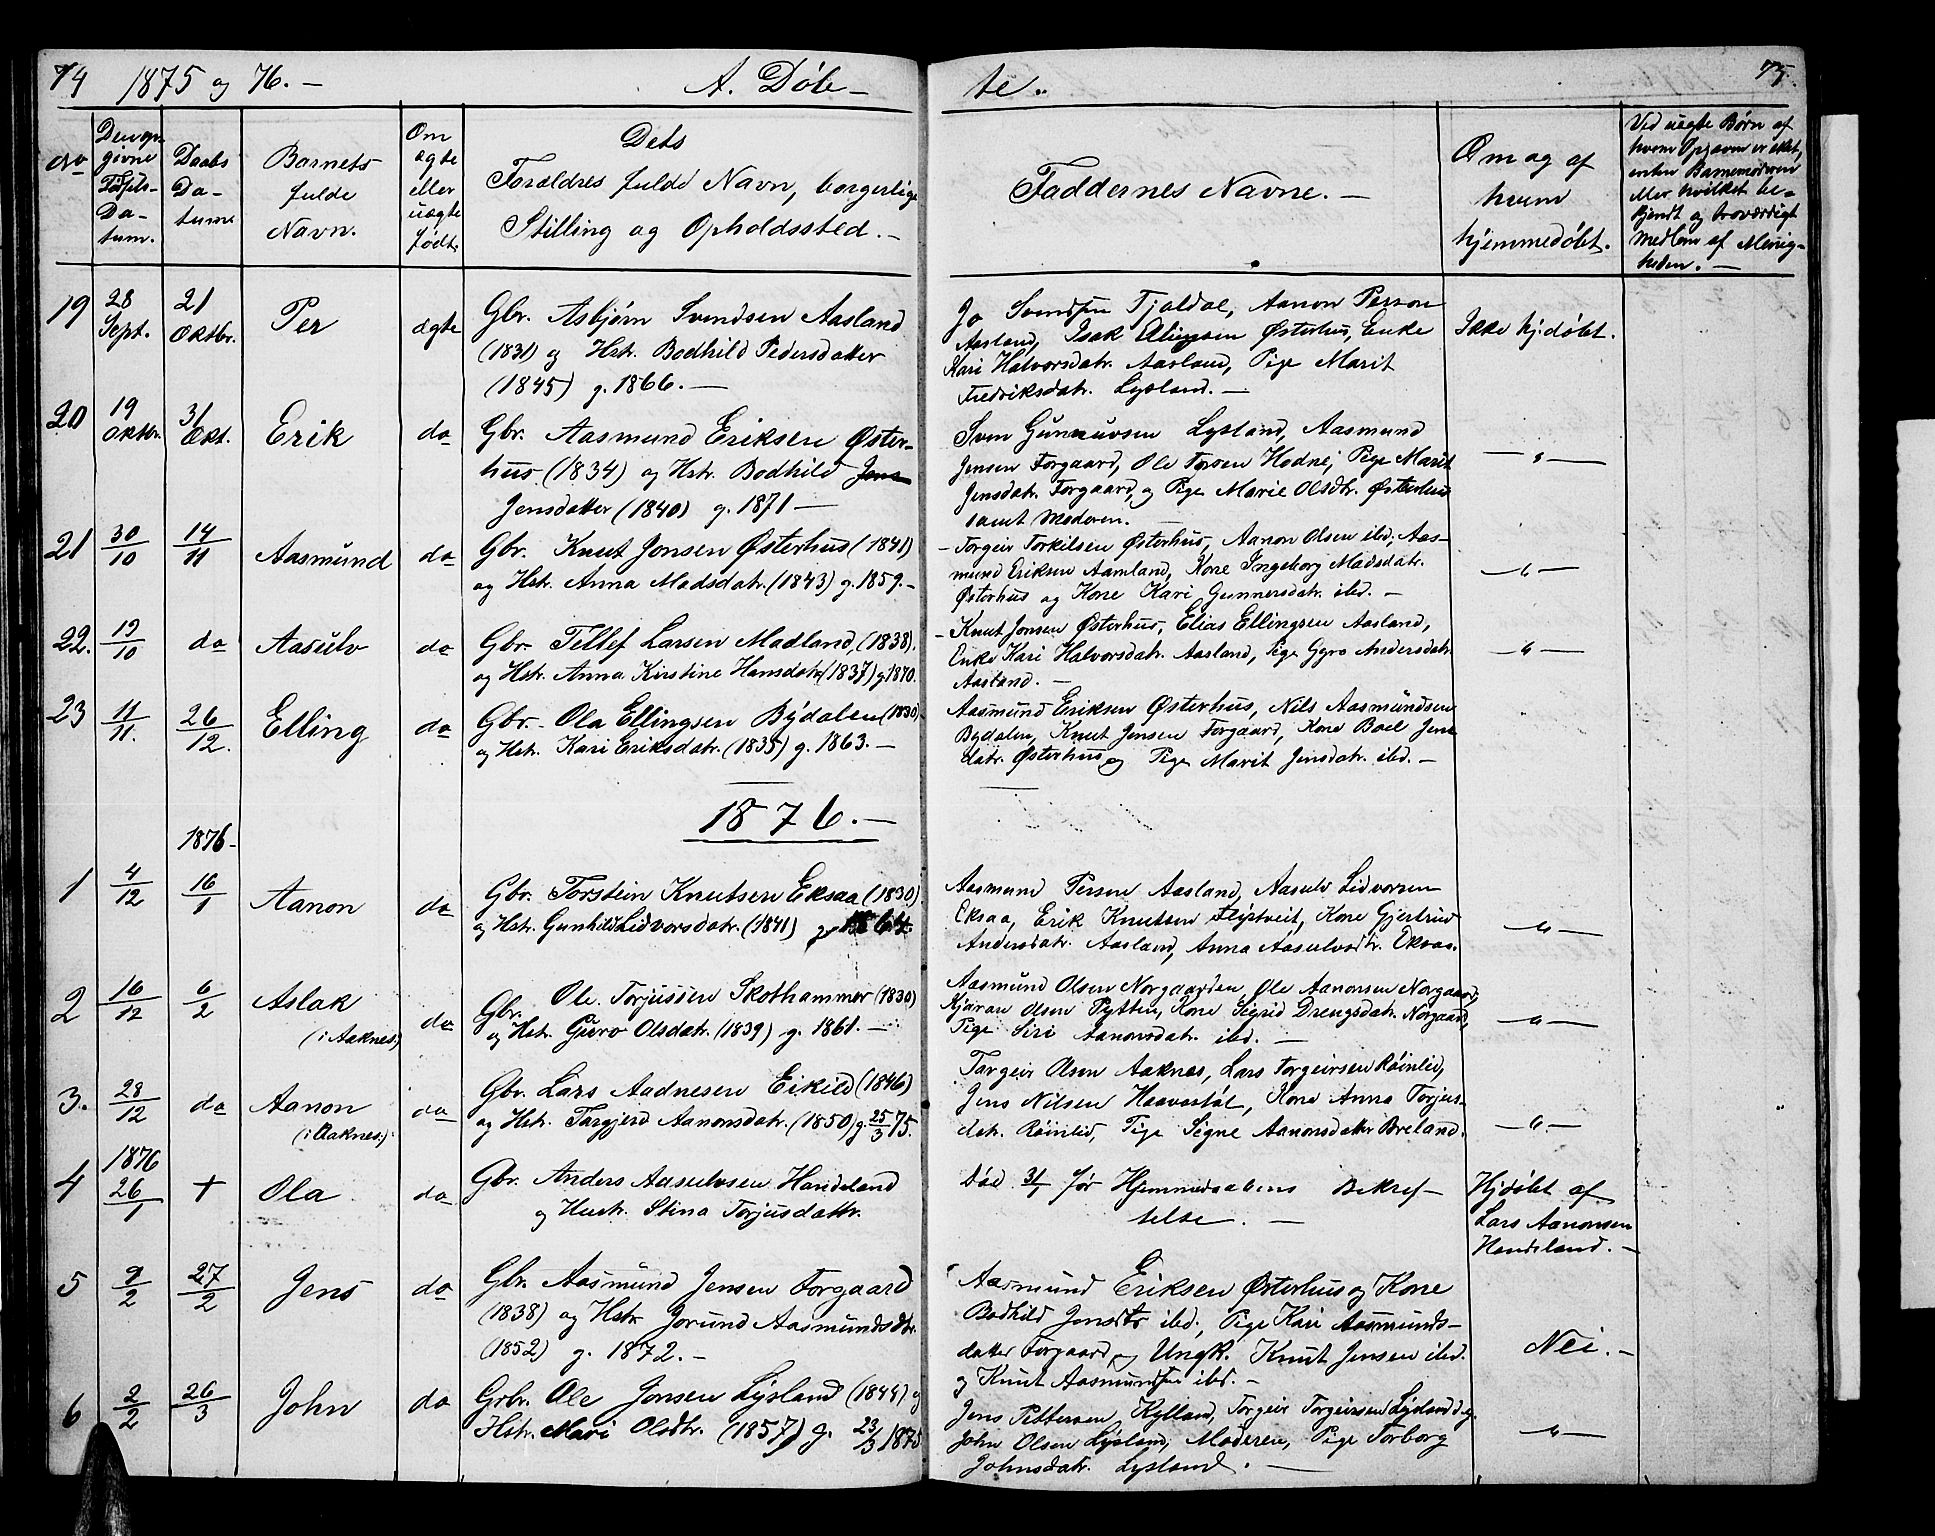 74 1875 og 76. — A. Døb—
te. 75.
No
Den op-
givne
Fødsels-
Da-
tum.
Daabs
Da-
tum
Barnets
fulde
Navn.
Om
ægte
eller
uægte
født.
Dets
Forældres fulde Navn, borgerlige
Stilling og Opholdssted. —
Faddernes Navne. —
Om og af
hvem
hjemmedøbt.
Ved uægte Børn af
hvem Opgaven er sket,
enten Barnemoderen
eller hvilket be-
kjendt og troværdigt
Medlem af Menig-
heden. —
19 28 Sept. 21 Oktbr. Per ægte
Gbr. Asbjørn Svendsen Aasland
(1831) og Hst. Bodhild Pedersdatter
(1845) g. 1866. —
Jo Svendsen Fjaldal, Aanon Persson
Aasland, Isak Østerhus, Enke
Kari Halvorsdatr. Aasland, Pige Marit
Fredriksdatr. Lysland. —
Ikke hjdøbt.
20 19 Oktbr. 31 Okt. Erik do
Gbr. Aasmund Eriksen Øster-
hus (1834) og Hstr. Bodhild Jens
Jensdatter (1840) g. 1871 —
Sven Gunnuvsen Lysland, Aasmund
Jensen Torgaard, Ole Torsen Hodne, Pige Marit
Jensdatr. Torgaard, og Pige Marie Olsdtr. Østerhus
samt Moderen. —
— " —
21 30/10 14/11 Aasmund do
Gbr. Knut Jonsen Østerhus (1841)
og Hstr. Anna Madsdatr. (1843) g. 1859. —
Torgeir Torkilsen Østerhus, Aanon Olsen ibd, Aas-
mund Eriksen Aamland, Kone Ingeborg Madsdatr.
Østerhus og Kone Kari Gunnersdatr. ibd. —
— " —
22. 19/10 do Aasulv do
Gbr. Tellef Larsen Madland, (1838).
og Hstr. Anna Kirstine Hansdatr (1837) g 1870.
Knut Jonsen Østerhus, Elias Ellingsen Aasland,
Enke Kari Halvorsdatr. Aasland, Pige Gyro Andersdatr.
Aasland. —
— " —
23 11/11. 26/12. Elling do
Gbr. Ola Ellingsen Bydalen (1830)
og Hstr. Kari Eriksdatr. (1835) g. 1863. —
Aasmund Eriksen Østerhus, Nils Aasmundsen
Bydalen, Knut Jensen Torgaard, Kone Boel Jens
datr. Østerhus og Pige Marit Jensdatr. ibd. —
1876. —
1876-
1 4/12 16/1 Aanon do
Gbr. Torstein Knutsen Eksaa (1830)
og Hstr. Gunhild Lidvorsdatr. (1841) g. 1864
Aasmund Persen Aasland, Aasulv Lidvorsen
Eksaa, Erik Knutsen Flystveit, Kone Gjertrud
Andersdatr. Aasland, Anna Aasulvsdtr. Eksaa.
— " —
2 16/12 6/2 Aslak
(i Aaknes) do
Gbr. Ole Torjussen Skothammer (1830)
og Hstr. Guro Olsdatr. (1839) g. 1861. —
Aasmund Olsen Norgaarden, Ole Aanonsen Norgaard,
Kjøran Olsen Pytten, Kone Sigrid Drengsdatr. Norgaard,
Pige Siri Aanonsdatr. ibd. —
— " —
3. 28/12 do Aanon
(i Aaknes) do
Gbr. Lars Aadnesen Eikild (1846)
og Hstr. Torgjerd Aanonsdatr. (1850) g. 25/3 75.
Targeir Olsen Aaknes, Lars Torgeirsen Røinlid,
Jens Nilsen Haavestøl, Kone Anna Torjus-
datr. Røinlid, Pige Signe Aanonsdatter Breland.
— " —
4 1876 26/1 + Ola do
Gbr. Anders Aasulvsen Handeland
og Hustr. Stina Torjusdattr.
Død 31/1 før Hjemmedaabens Bekræf-
telse. —
Hjdøbt af
Lars Aanonsen
Handeland. —
5 9/2 27/2 Jens do
Gbr. Aasmund Jensen Torgaard
(1838) og Hstr. Jorund Aasmundsdtr.
(1852) g. 1872. —
Aasmund Eriksen Østerhus og Kone
Bodhild Jensdtr ibd., Pige Kari Aasmunds-
datter Torgaard og Ungk. Knut Jensen ibd.
og Knut Aasmundsen ibd. —
Nei. —
6 2/2 26/3 John do
Grbr. Ole Jonsen Lysland (1844) g
Hstr. Mari Olsdtr. (1857) g. 23/3 1875
Jens Pettersen Kylland, Torgeir Torgeirsen Lysland og
John Olsen Lysland, Moderen, Pige Torborg
Johnsdatr. Lysland. —
— " —